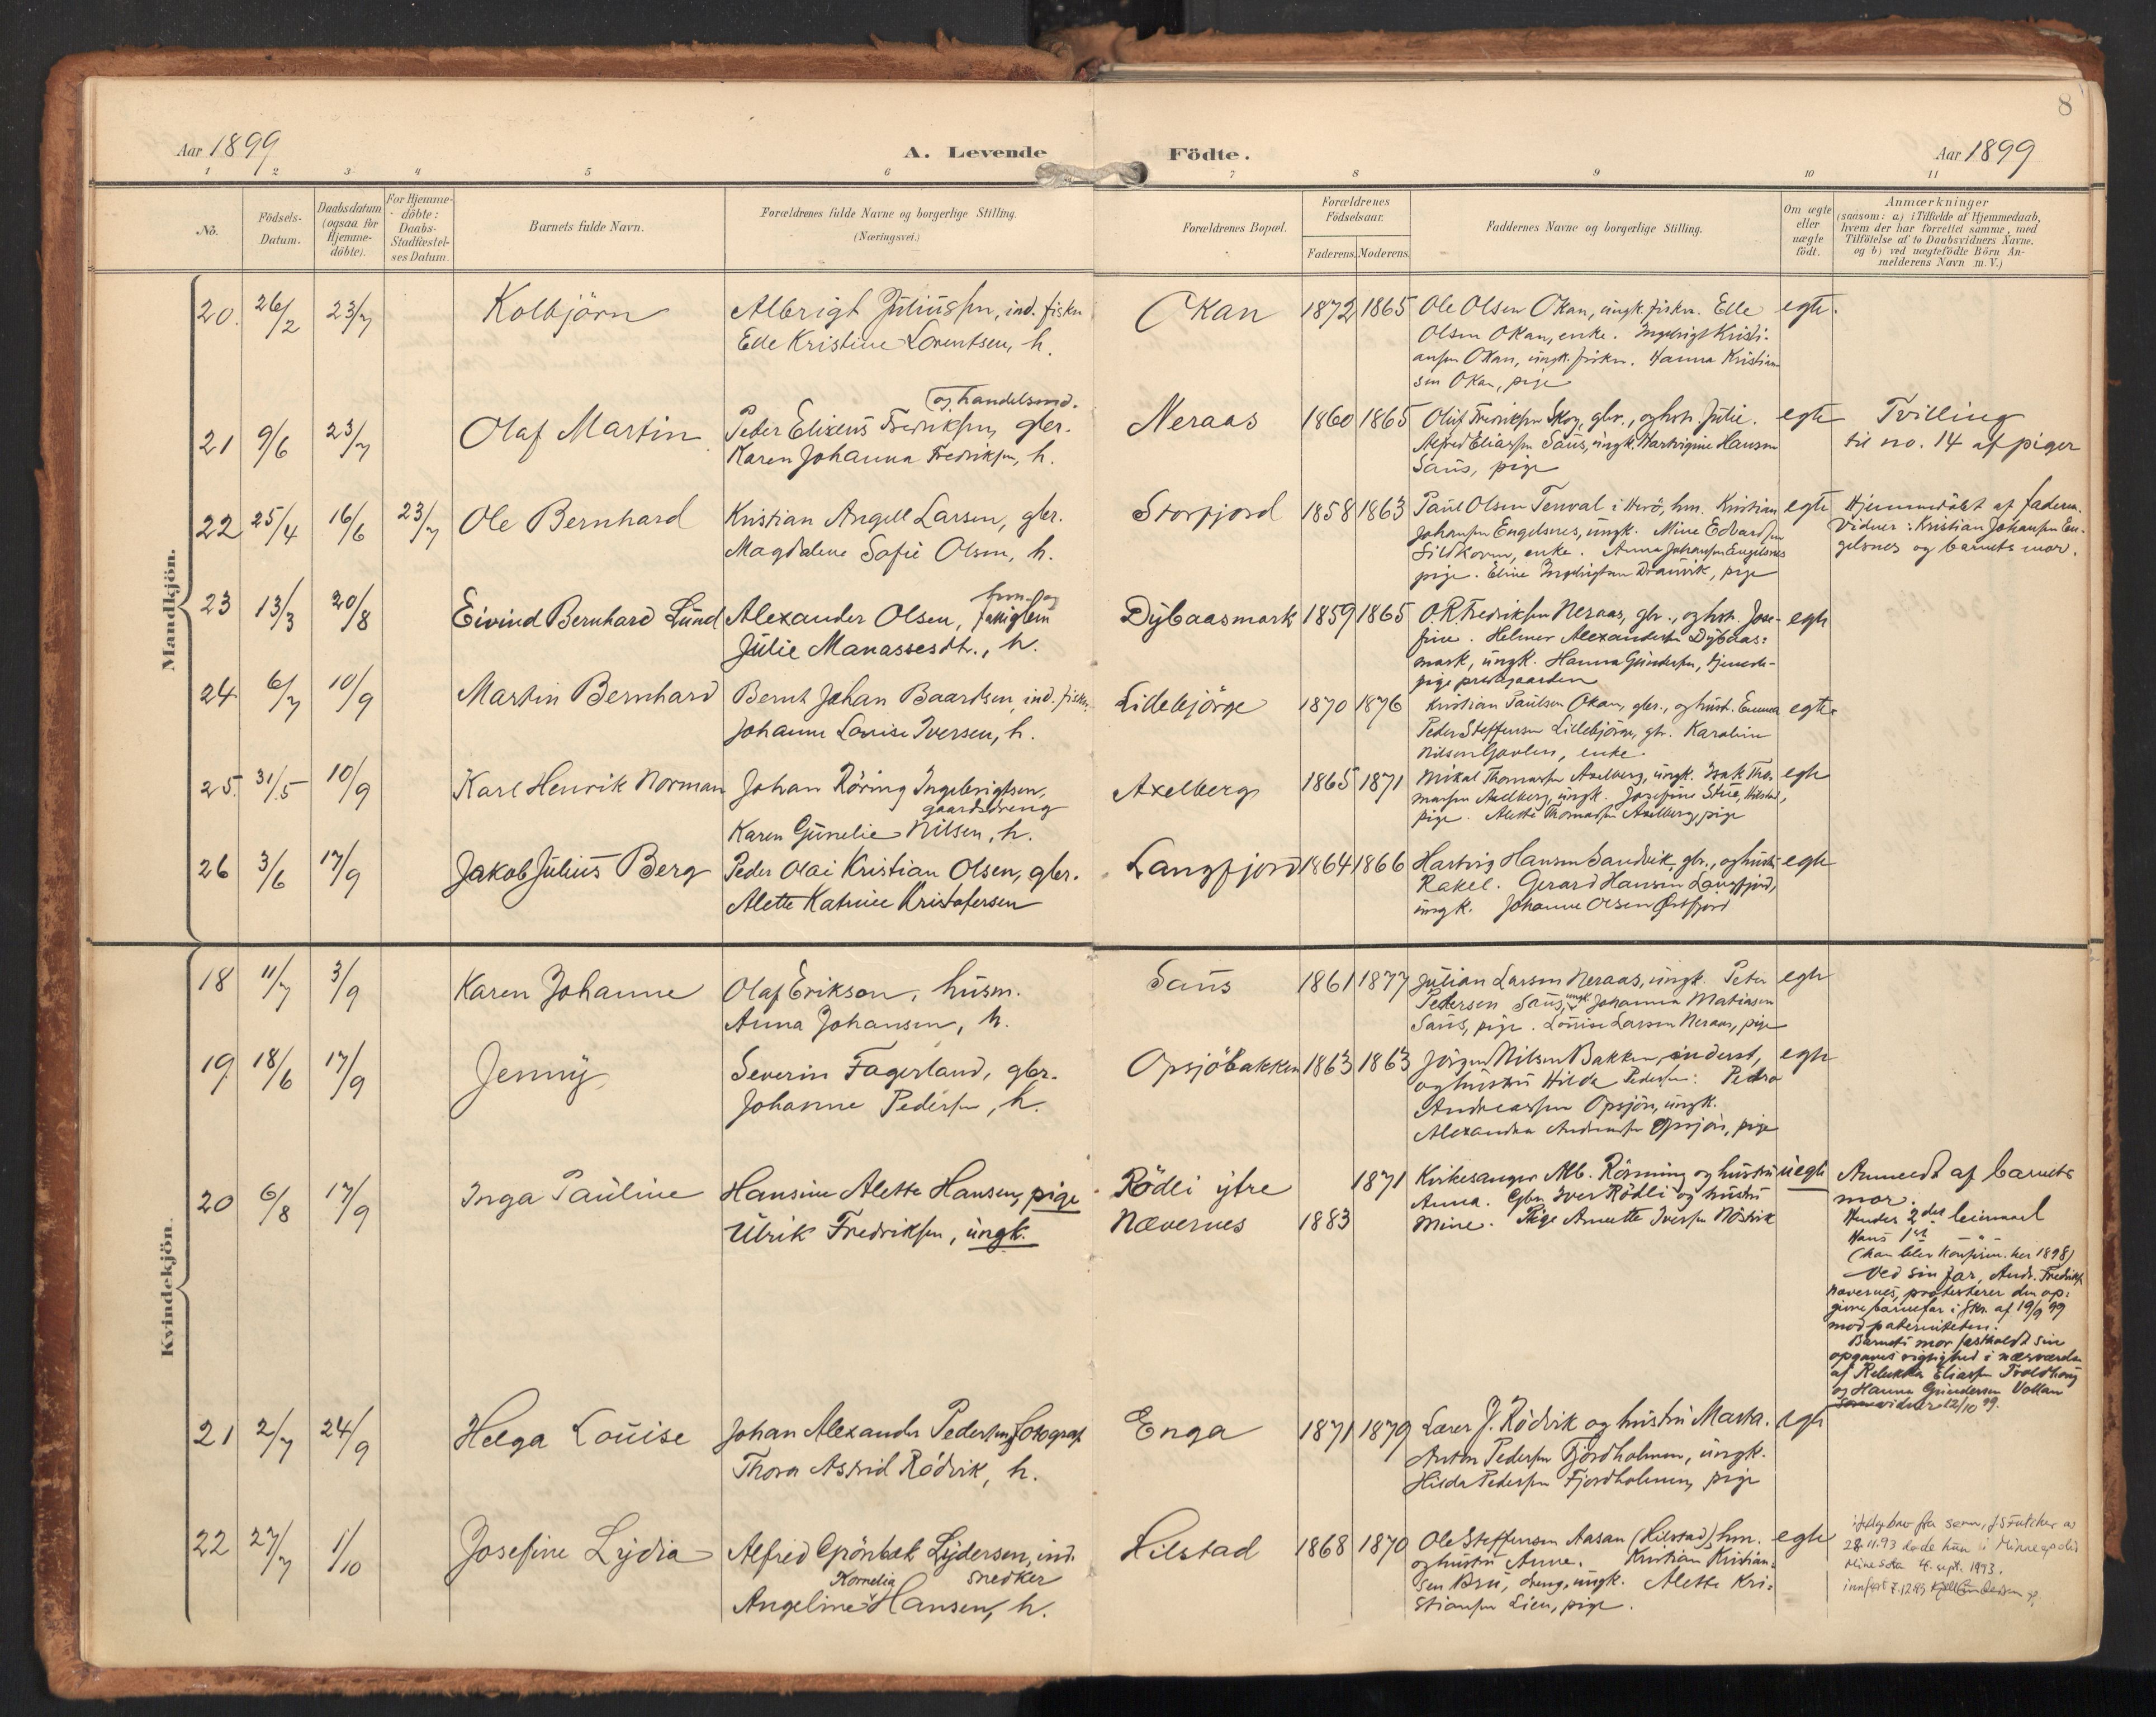 8
Aar 1899
A. Levende
Födte.
Aar 1899
1 2 3 4 5 6 7 8 9 10 11
No.
Födsels-
Datum.
Daabsdatum
(ogsaa for
Hjemme-
döbte).
For Hjemme-
döbte:
Daabs-
Stadfæstel-
ses Datum.
Barnets fulde Navn.
Forældrenes fulde Navne og borgerlige Stilling.
(Næringsvei.)
Forældrenes Bopæl.
Forældrenes
Födselsaar.
Faderens. Moderens.
Faddernes Navne og borgerlige Stilling.
Om ægte
eller
uægte
födt.
Anmærkninger
(saasom: a) i Tilfælde af Hjemmedaab,
hvem der har forrettet samme, med
Tilföielse af to Daabsvidners Navne.
og b) ved uægtefödte Börn An-
melderens Navn m. V.)
Mandkjön.
20. 26/2 23/7 Kolbjörn
Albrigt Juliussen, ind. fisker
Elle Kristine Lorentsen, h.
Okan 1872 1865
Ole Olsen Okan, ungk. fisker. Elle
Olsen Okan, enke. Ingebrigt Kristi-
ansen Okan, ungk. fisker. Hanna Kristian
sen Okan, pige
egte.
21 9/6 23/7 Olaf Martin
og handelsmd.
Peder Elizeus Fredriksen, gbr.
Karen Johanna Fredriksen, h.
Neraas 1860 1865
Oluf Fredriksen Skog, gbr., og hstr. Julie.
Alfred Eliassen Saus, ungk. Hartvigine Hansen
Saus, pige
egte
Tvilling
til no. 14 af piger
22 25/4 16/6 23/7 Ole Bernhard
Kristian Angell Larsen, gbr.
Magdalene Sofie Olsen, h.
Storfjord 1858 1863
Paul Olsen Tenval i Herö, hm. Kristian
Johansen Engelsnes, ungk. Mine Edvardsen
Sildkoven, enke. Anna Johansen Engelsnes
pige. Eline Ingebrigtsen Drausvik, pige
egte
Hjemmedöbt af faderen.
Vidner: Kristian Johansen En-
gelsnes og barnets mor.
23 13/3 20/8 Eivind Bernhard Lund
Alexander Olsen, fattiglem
Julie Manassesdtr., h.
Dybaasmark 1859 1865
O.R. Fredriksen Neraas, gbr., og hstr. Jose-
fine. Helmer Alexandersen Dybaas-
mark, ungk. Hanna Gundersen, tjeneste-
pige prestegaarden
egte
24 6/7 10/9 Martin Bernhard
Bernt Johan Baardsen, ind. fisker.
Johanne Lovise Iversen, h.
Lillebjörge 1870 1876
Kristian Paulsen Okan, gbr., og hust. Emma
Peder Steffensen Lillebjörge, gbr. Karoline
Nilsen, enke.
egte
25. 31/5 10/9 Karl Henrik Norman
Johan Röring Ingebrigtsen,
gaardsdreng
Karen Gunelie Nilsen, h.
Axelberg 1865 1871
Mikal Thomassen Axelberg, ungk. Isak Tho-
massen Axelberg, ungk. Josefine Stue, Hilstad,
pige. Alette Thomassen Axelberg, pige
egte
26 3/6 17/9 Jakob Julius Berg
Peder Olai Kristian Olsen, gbr.
Alette Katrine Kristofersen
Langfjord 1864 1866
Hartvig Hansen Sandvik, gbr., og hustr.
Rakel. Gerard Hansen Langfjord,
ungk. Johanne Olsen Østfjord
egte
Kvindekjön.
18 11/7 3/9 Karen Johanne
Olaf Erikson, husm.
Anna Johansen, h.
Saus 1861 1877
Julian Larsen Neraas, ungk. Peter
Pedersen Saus, ungk. Johanna Matiasen
Saus, pige. Louise Larsen Neraas, pige
egte
19. 18/6 17/9 Jenny
Severin Fagerland, gbr.
Johanne Pedersen, h.
Opsjöbakken 1863 1863
Jörgen Nilsen Bakken, inderst,
og hustru Hilda Pedersen. Pedro
Andreassen Opsjöen, ungk.
Alexandra Andreassen Opsjöen, pige
egte
20 6/8 17/9 Inga Pauline
Hansine Alette Hansen, pige
Ulrik Fredriksen, ungk.
Rödli ytre 1871
Nævernes 1883
Kirkesanger Alb. Rösning og hustru
Anna. Gbr. Iver Rödli og hustru
Mine. Pige Anette Iversen Nösvik
uegte
Anmeldt af barnets
mor.
Hendes 2det leiermaal
Hans 1ste — " —
(han blev konfirm. her 1898)
Ved sin far, Andr. Fredriks.
Navernes, protesterer den op-
givne barnefar i skr. af 19/9 99
mod paterniteten.
Barnets mor fastholdt sin
opgaves rigtighed i nærværelse
af Rebekka Eliassen Troldhaug
og Hanna Gundersen Vollan
vidner 12/10 99.
21 2/7 24/9 Helga Louise
Johan Alexander Pedersen, fotograf
Thora Astrid Rödvik, h.
Enga 1871 1879
Lærer J. Rödvik og hustru Marta.
Anton Pedersen Fjordholmen, ungk.
Hilda Pedersen Fjordholmen, pige
egte
22 27/7 1/10 Josefine Lydia
Alfred Grönbæk Lydersen, ind.
snedker
Kornelia
Angeline Hansen, h.
Hilstad 1868 1870
Ole Steffensen Aasan (Hilstad), hm.
og hustru Anne. Kristian Kristian-
sen Bru, dreng, ungk. Alette Kri-
stiansen Lien, pige.
egte
ifølge brev fra sønn,
28.11.93 døde hun i Minneapolis
Minesota 4. sept. 1993.
innført 7.12.93